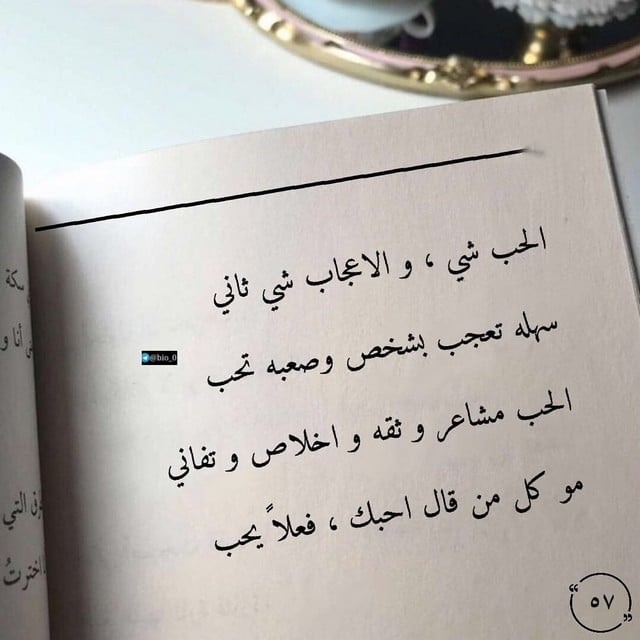 الحب شي ، و الاعجاب شي ثاني
سهله تعجب بشخص وصعبه تحب
الحب مشاعر و ثقه و اخلاص و تفاني
مو كل من قال احبك ، فعلاً يحب
@bio_0
سكة
أنا و
التي
اخترتُ
“٥٧”